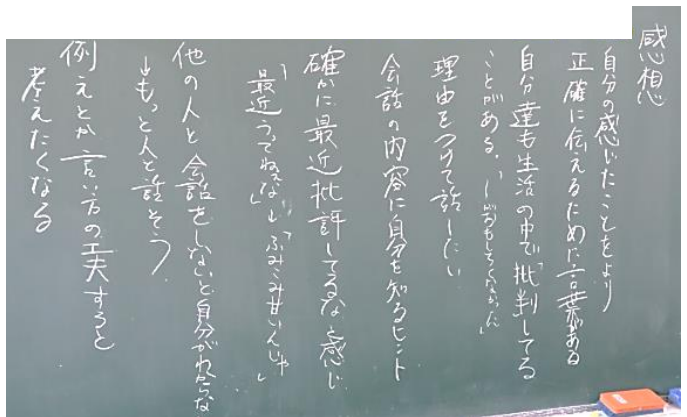 感想
自分の感じたことをより
正確に伝えるために言葉がある
自分達も生活の中で「批判」してる
ことがある。「〜がおもしろくなかった」
理由をつけて話したい
会話の内容に自分を知るヒント
確かに最近批評してるなと感じ
「最近うってねぇな」→「ふみこみ甘いんじゃ」
他の人と会話をしないと自分がわからな
↓もっと人と話そう
例えとか言い方の工夫すると
考えたくなる